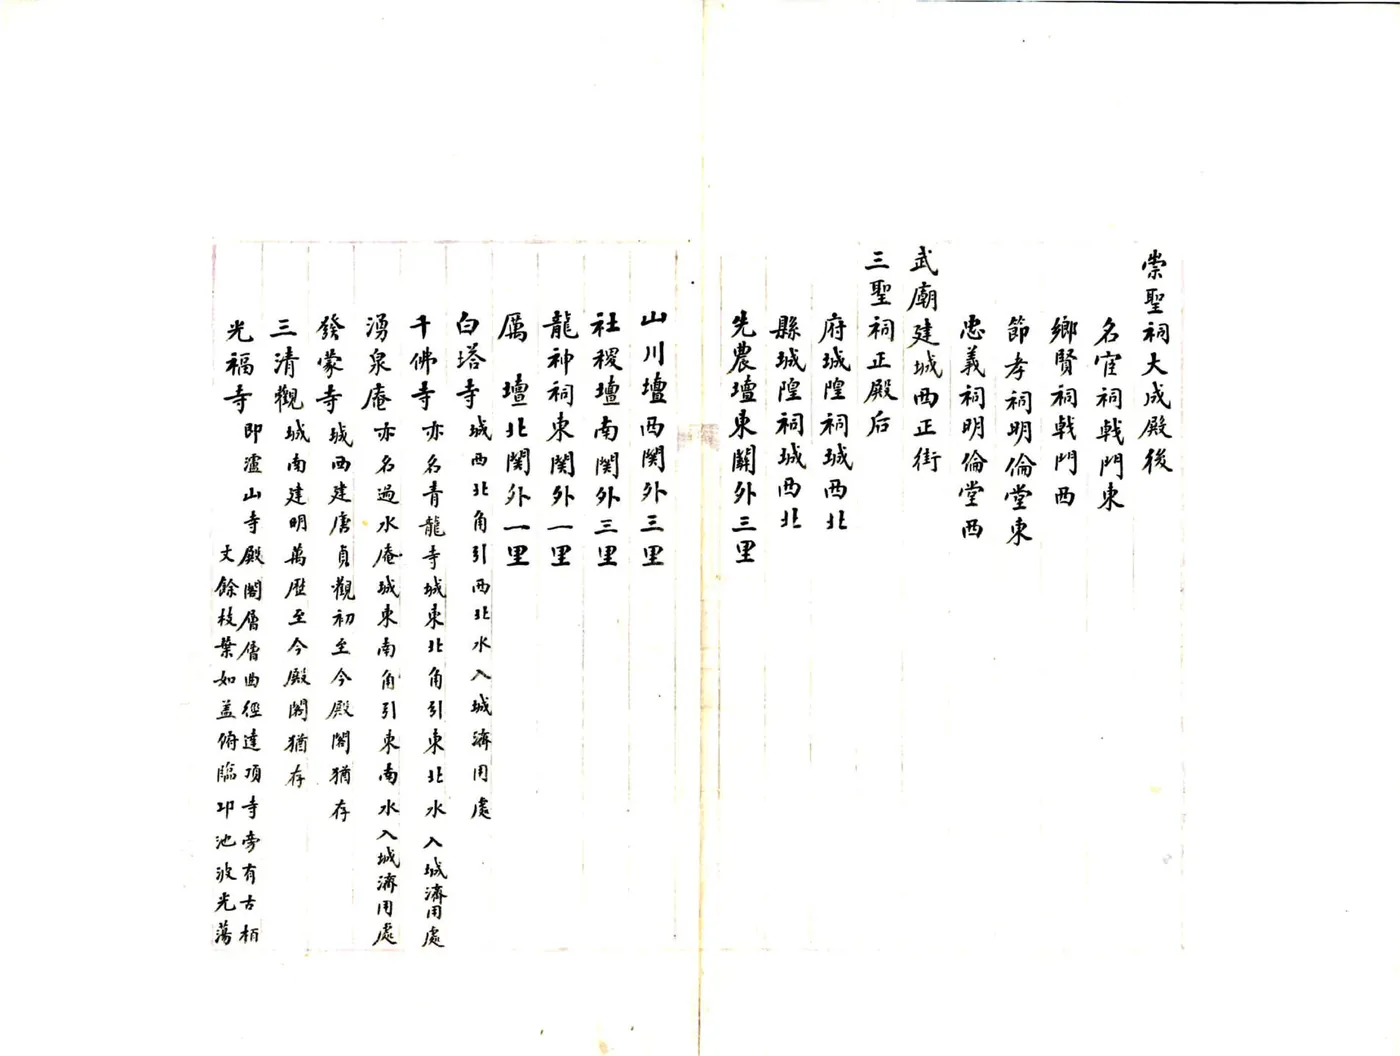 崇聖祠大成殿後
名宦祠戟門東
鄉賢祠戟門西
節孝祠明倫堂東
忠義祠明倫堂西
武廟建城西正街
三聖祠正殿后
府城隍祠城西北
縣城隍祠城西北
先農壇東關外三里
山川壇西関外三里
社稷壇南関外三里
龍神祠東関外一里
厲　壇北関外一里
白塔寺城西北角引西北水入城濟用處
千佛寺亦名青龍寺城東北角引東北水入城濟用處
湧泉庵亦名過水庵城東南角引東南水入城濟用處
發蒙寺城西建唐貞觀初至今殿閣猶存
三清觀城南建明萬歷至今殿閣猶存
光福寺即瀘山寺殿閣層層曲徑達頂寺旁有古栢
丈餘枝葉如盖俯臨邛池波光蕩